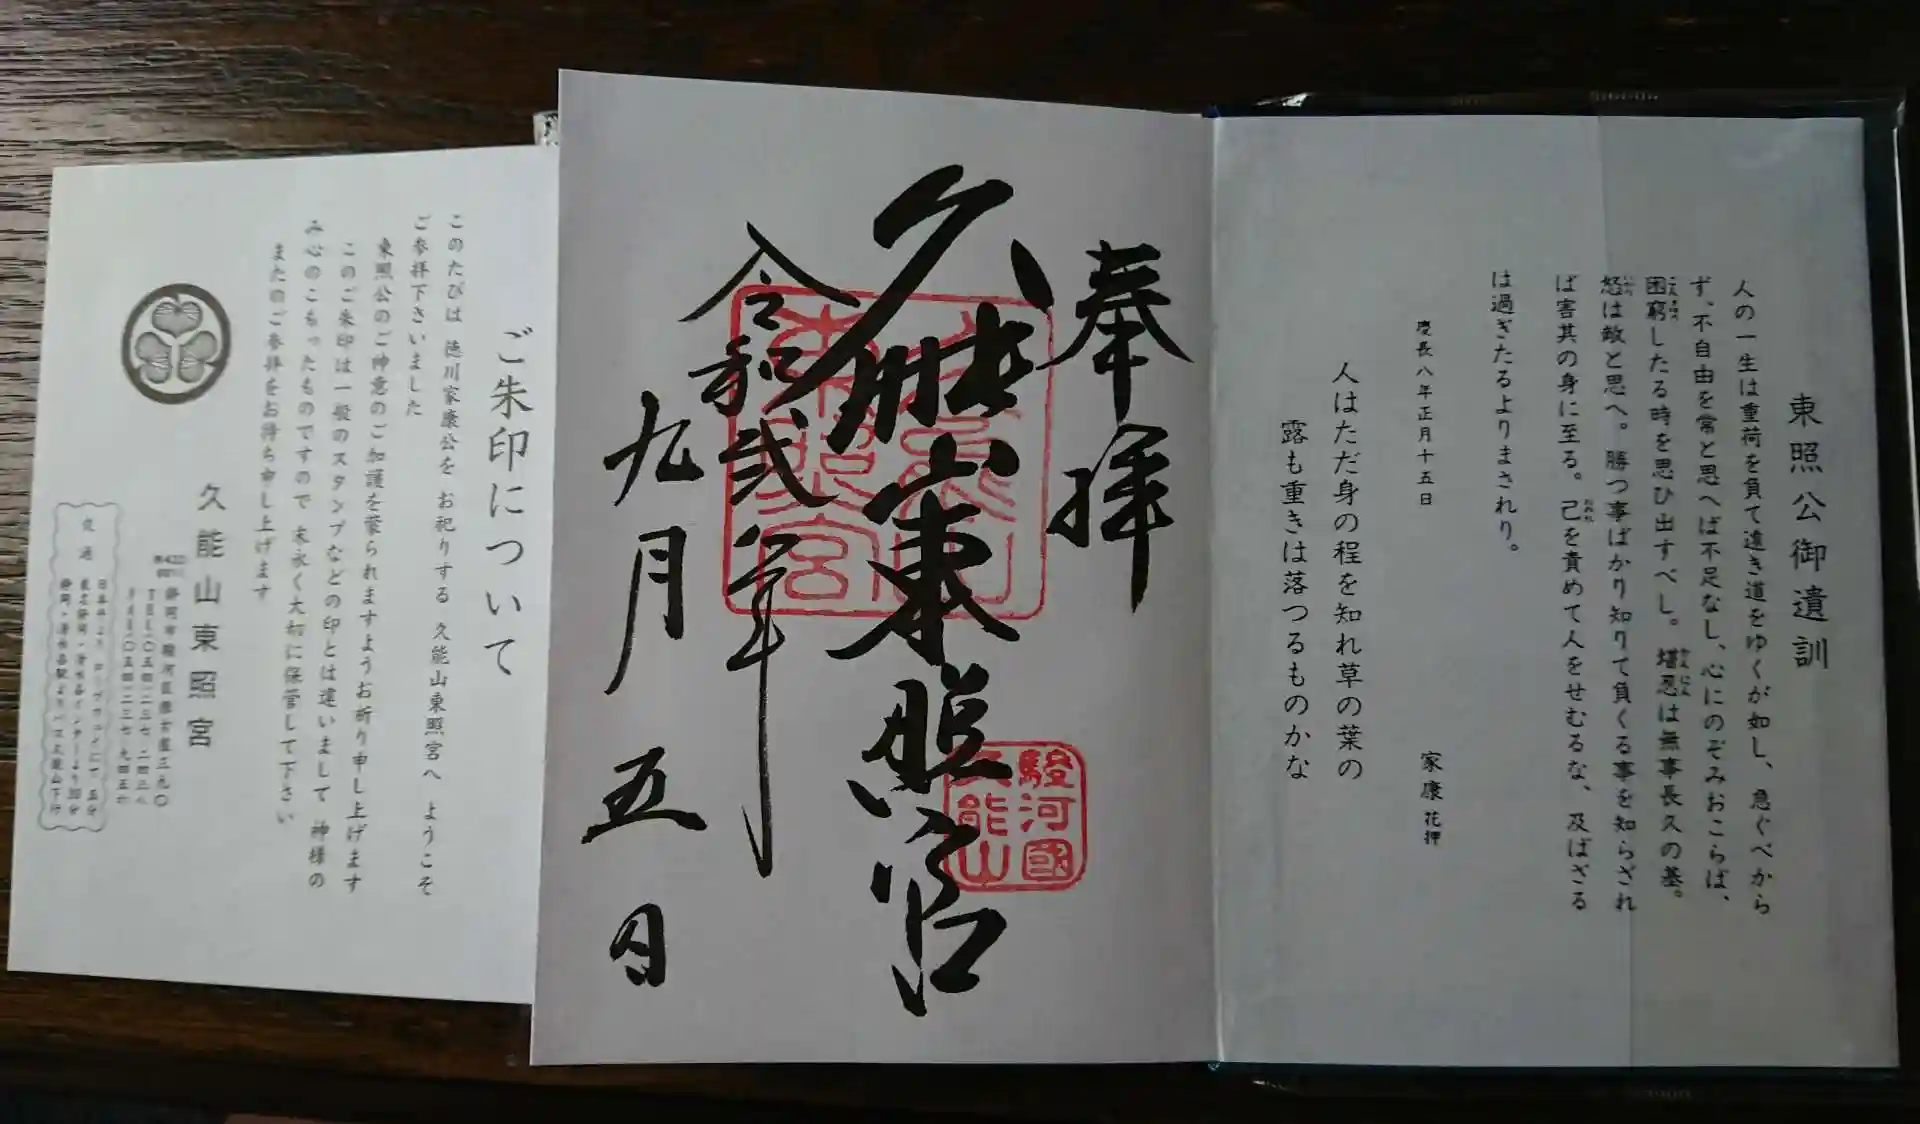 東照公御遺訓
人の一生は重荷を負て遠き道をゆくが如し、急ぐべから
ず、不自由を常と思へば不足なし、心にのぞみおこらば、
困窮したる時を思ひ出すべし。堪忍は無事長久の基。
怒は敵と思へ。勝つ事ばかり知りて負くる事を知らざれ
ば害其の身に至る。己を責めて人をせむるな、及ばざる
は過ぎたるよりまされり。
慶長八年正月十五日
家康 花押
人はただ身の程を知れ草の葉の
露も重きは落つるものかな
奉拝
久能山東照宮
令和弐年
九月五日
東照宮
駿河國
久能山
ご朱印について
このたびは 徳川家康公を お祀りする 久能山東照宮へ ようこそ
ご参拝下さいました
東照公のご神意のご加護を蒙られますようお祈り申し上げます
このご朱印は一般のスタンプなどの印とは違いまして 神様の
み心のこもったものですので 末永く大切に保管して下さい
またのご参拝をお待ち申し上げます
久能山東照宮
静岡市駿河区根古屋三九〇
交通